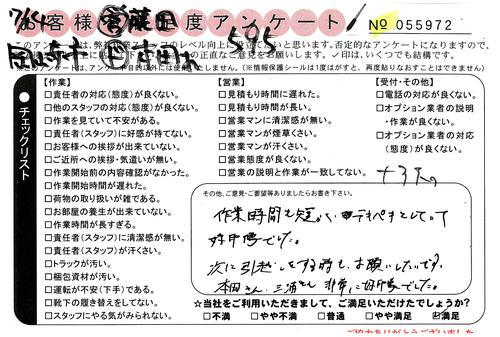 お客様
度アンケート
№ 055972
595
このアンケートは、弊社
スタッフのレベル向上に役立てたいと思います。否定的なアンケートになりますので、
の正直なご意見をお願いします。✓印は、いくつでも結構です。
チェックリスト
【作業】
□責任者の対応(態度)が良くない。
□他のスタッフの対応(態度)が良くない。
□作業を見ていて不安がある。
□責任者(スタッフ)に好感が持てない。
□お客様への挨拶が出来ていない。
□ご近所への挨拶・気遣いが無い。
□作業開始前の内容確認がなかった。
□作業開始時間が遅れた。
□荷物の取り扱いが雑である。
□お部屋の養生が出来ていない。
□作業時間が長すぎる。
□責任者(スタッフ)に清潔感が無い。
□責任者(スタッフ)が汗くさい。
□トラックが汚い。
□梱包資材が汚い。
□運転が不安(下手)である。
□靴下の履き替えをしてない。
□スタッフにやる気がみられない。
【営業】
□見積もり時間に遅れた。
□見積もり時間が長い。
□営業マンに清潔感が無い。
□営業マンが煙草くさい。
□営業マンが汗くさい。
□営業態度が良くない。
□営業の説明と作業が一致してない。
【受付・その他】
□電話の対応が良くない。
□オプション業者の説明
・作業が良くない。
□オプション業者の対応
(態度)が良くない。
その他、ご意見・ご要望等ありましたらお書き下さい。
作業時間も短かく、テキパキとしていて
好印象でした。
次に引越しをする時も、お願いしたいです。
本田さん、三浦さん 非常に好印象でした。
☆当社をご利用いただきまして、ご満足いただけたでしょうか?
□不満 □やや不満 □普通 □やや満足 □満足
ご協力ありがとうございました